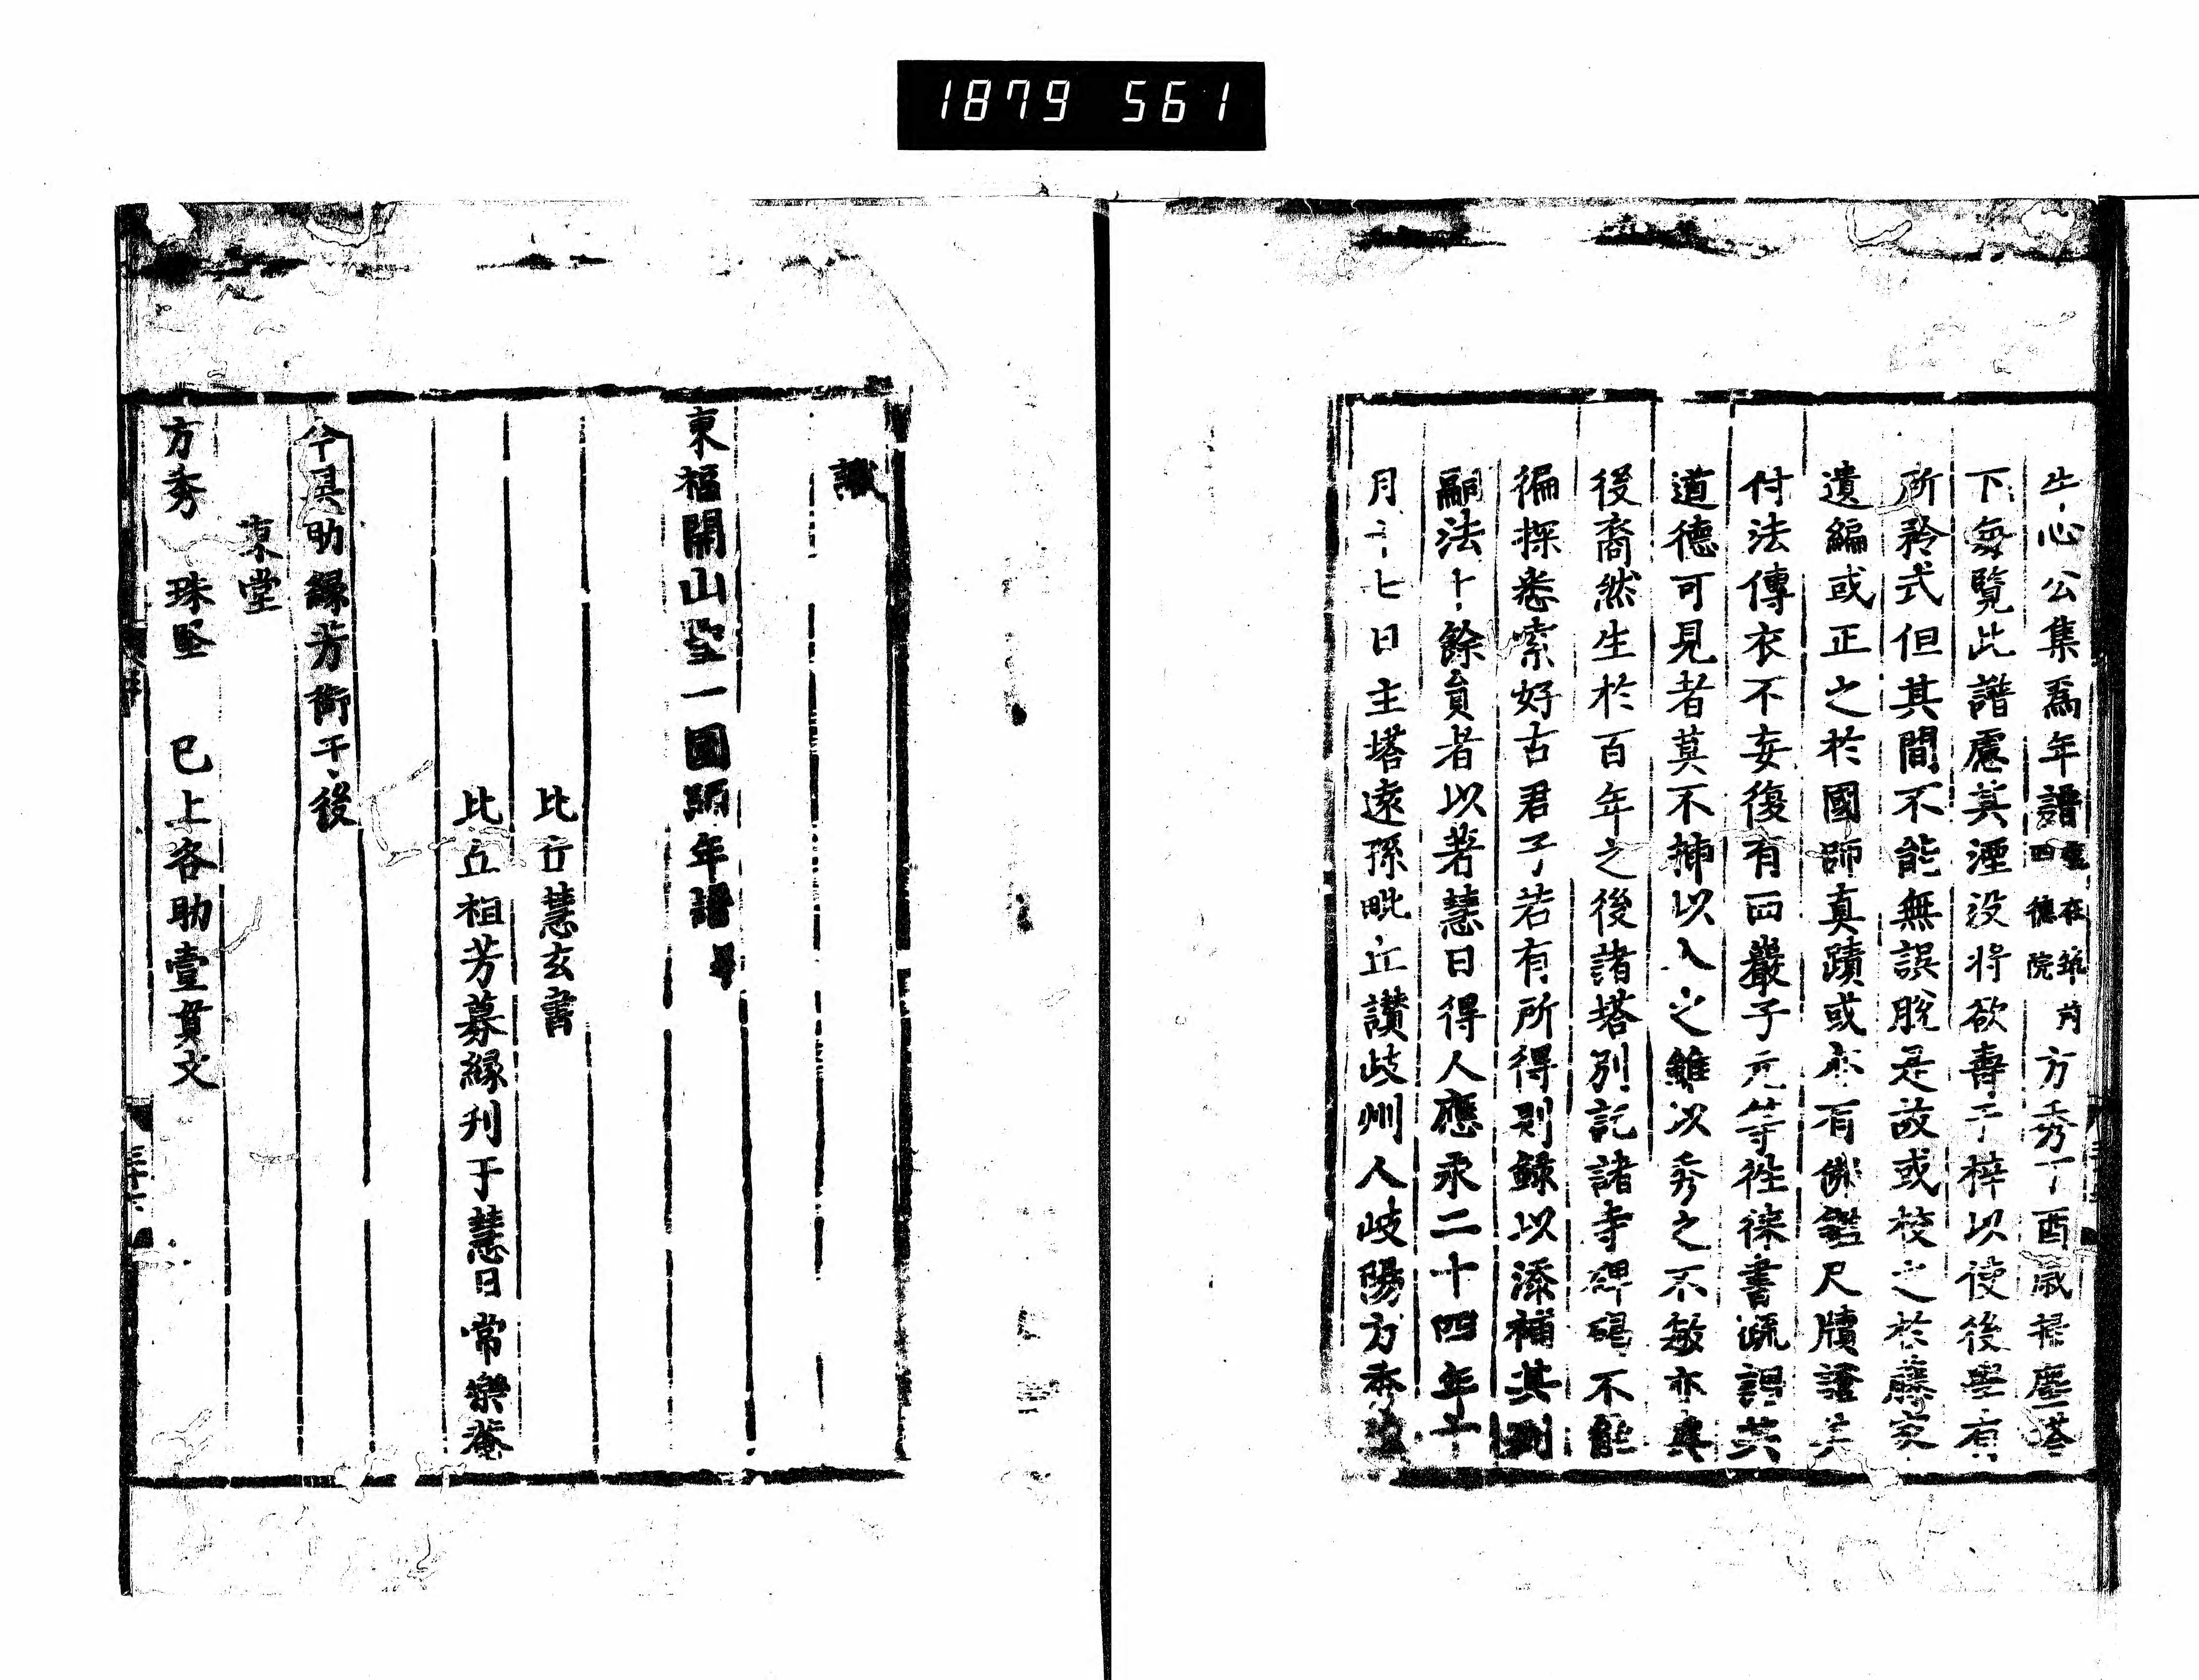 1879 561
牛心公集爲年譜 在筑前 四德院 方秀丁酉歳掃塵塔
下毎覽此譜慮其湮没将欲壽于梓以使後學有
所矜式但其間不能無誤脱是故或校之於藤家
遺編或正之於國師真蹟或亦有佛鑑尺牘證其
付法傳衣不妄復有西巖子元等徃徠書疏謂其
道德可見者莫不揷以入之雖以秀之不敏亦真
後裔然生於百年之後諸塔別記諸寺碑碣不能
徧探悉索好古君子若有所得則録以添補其
嗣法十餘員者以著慧日得人應永二十四年十
月二七日主塔遠孫毗丘讃岐州人岐陽方秀
識
東福開山聖一國師年譜畢
比丘慧玄書
比丘祖芳募縁刋于慧日常樂菴
今具助縁芳銜于後
東堂
方秀 珠堅 已上各助壹貫文